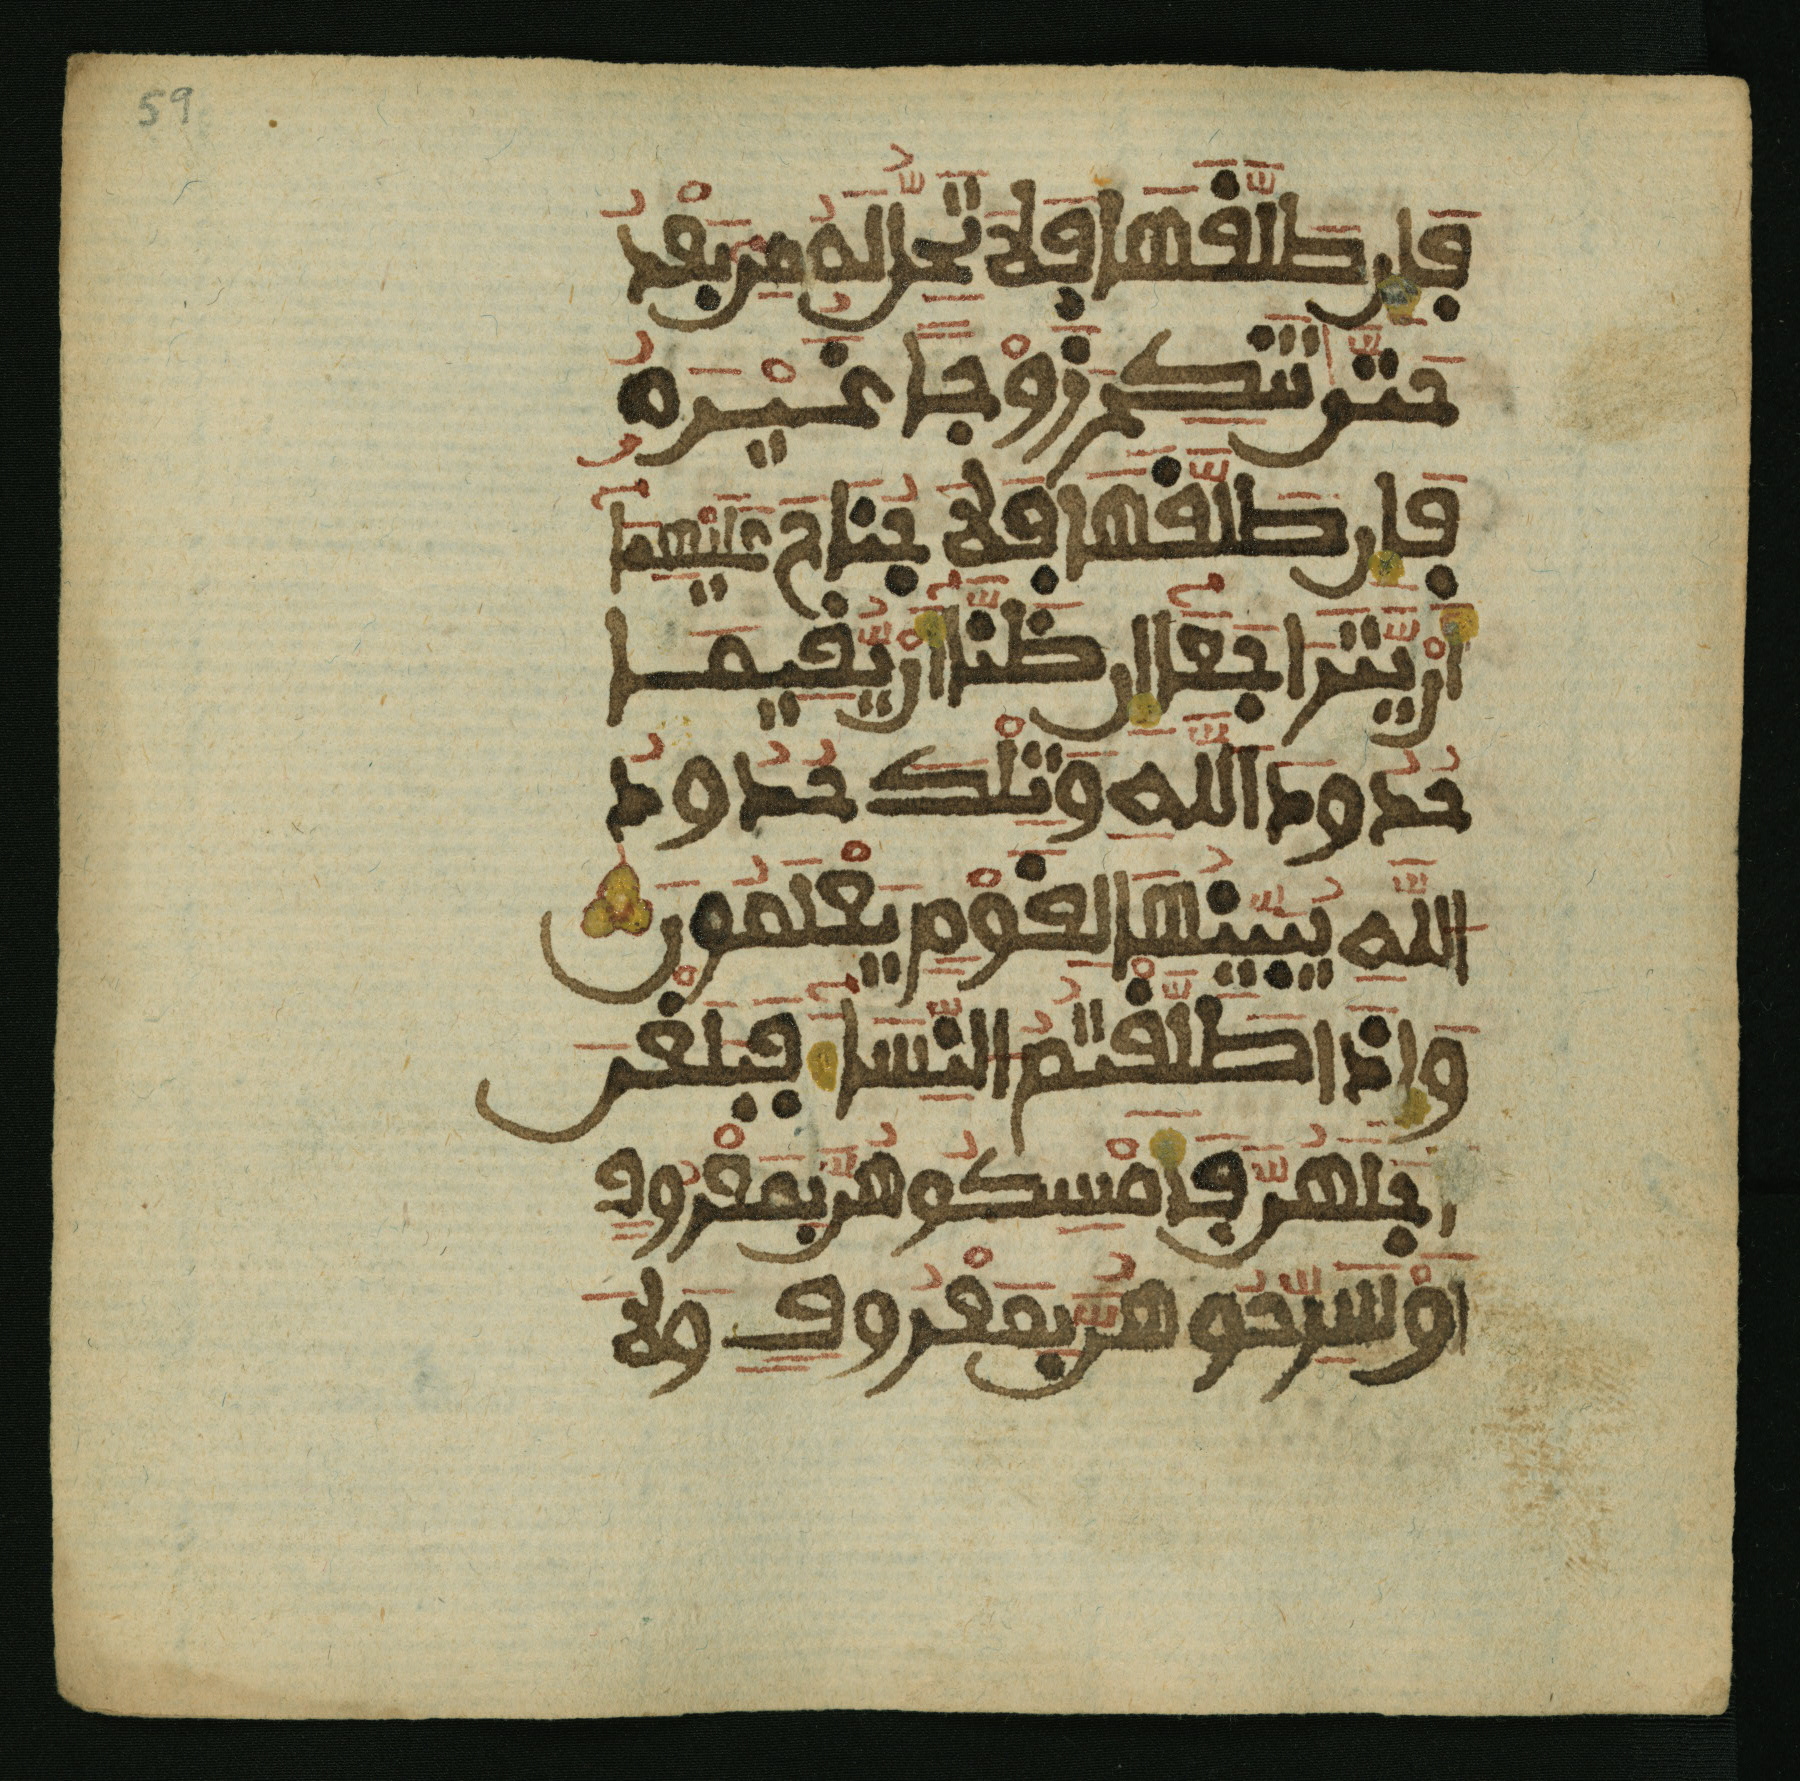 59
فإن طلقها فلا تحل له من بعد
حتى تنكح زوجا غيره
فإن طلقها فلا جناح عليهما
أن يتراجعا إن ظنا أن يقيما
حدود الله وتلك حدود
الله يبينها لقوم يعلمون
وإذا طلقتم النسا فبلغن
اجلهن فأمسكوهن بمعروف
او سرحوهن بمعروف ولا